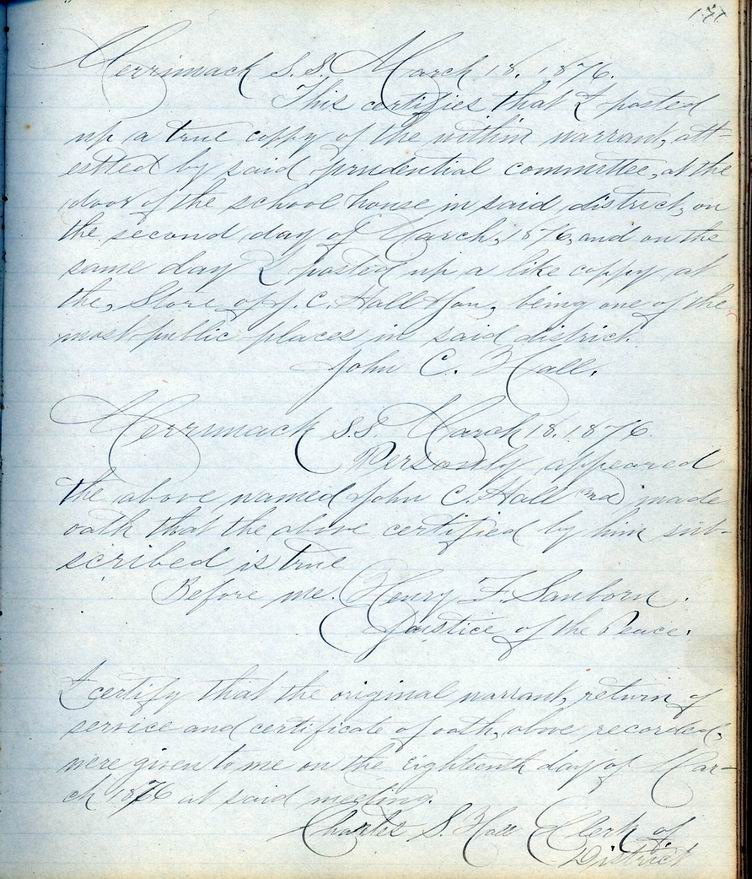 171
Merrimack S.S. March 18. 1876.
This certifies that I posted
up a true copy of the within warrant, att-
ested by said prudential committee, at the
door of the school house in said district, on
the second day of March, 1876, and on the
same day I posted up a like coppy, at
the, Store of J. C. Hall & Son, being one of the
most public places in said district.
John C. Hall.
Merrimack S.S. March 18. 1876.
Personly appeared
the above named John C. Hall and made
oath that the above certified by him sub-
scribed is true
Before me. Henry F. Sanborn.
Justice of the Peace.
I certify that the original warrant, return of
service and certificate of oath, above recorded,
were given to me on the eighteenth day of Mar-
ch 1876 at said meeting.
Charles S. Hall Clerk of
District